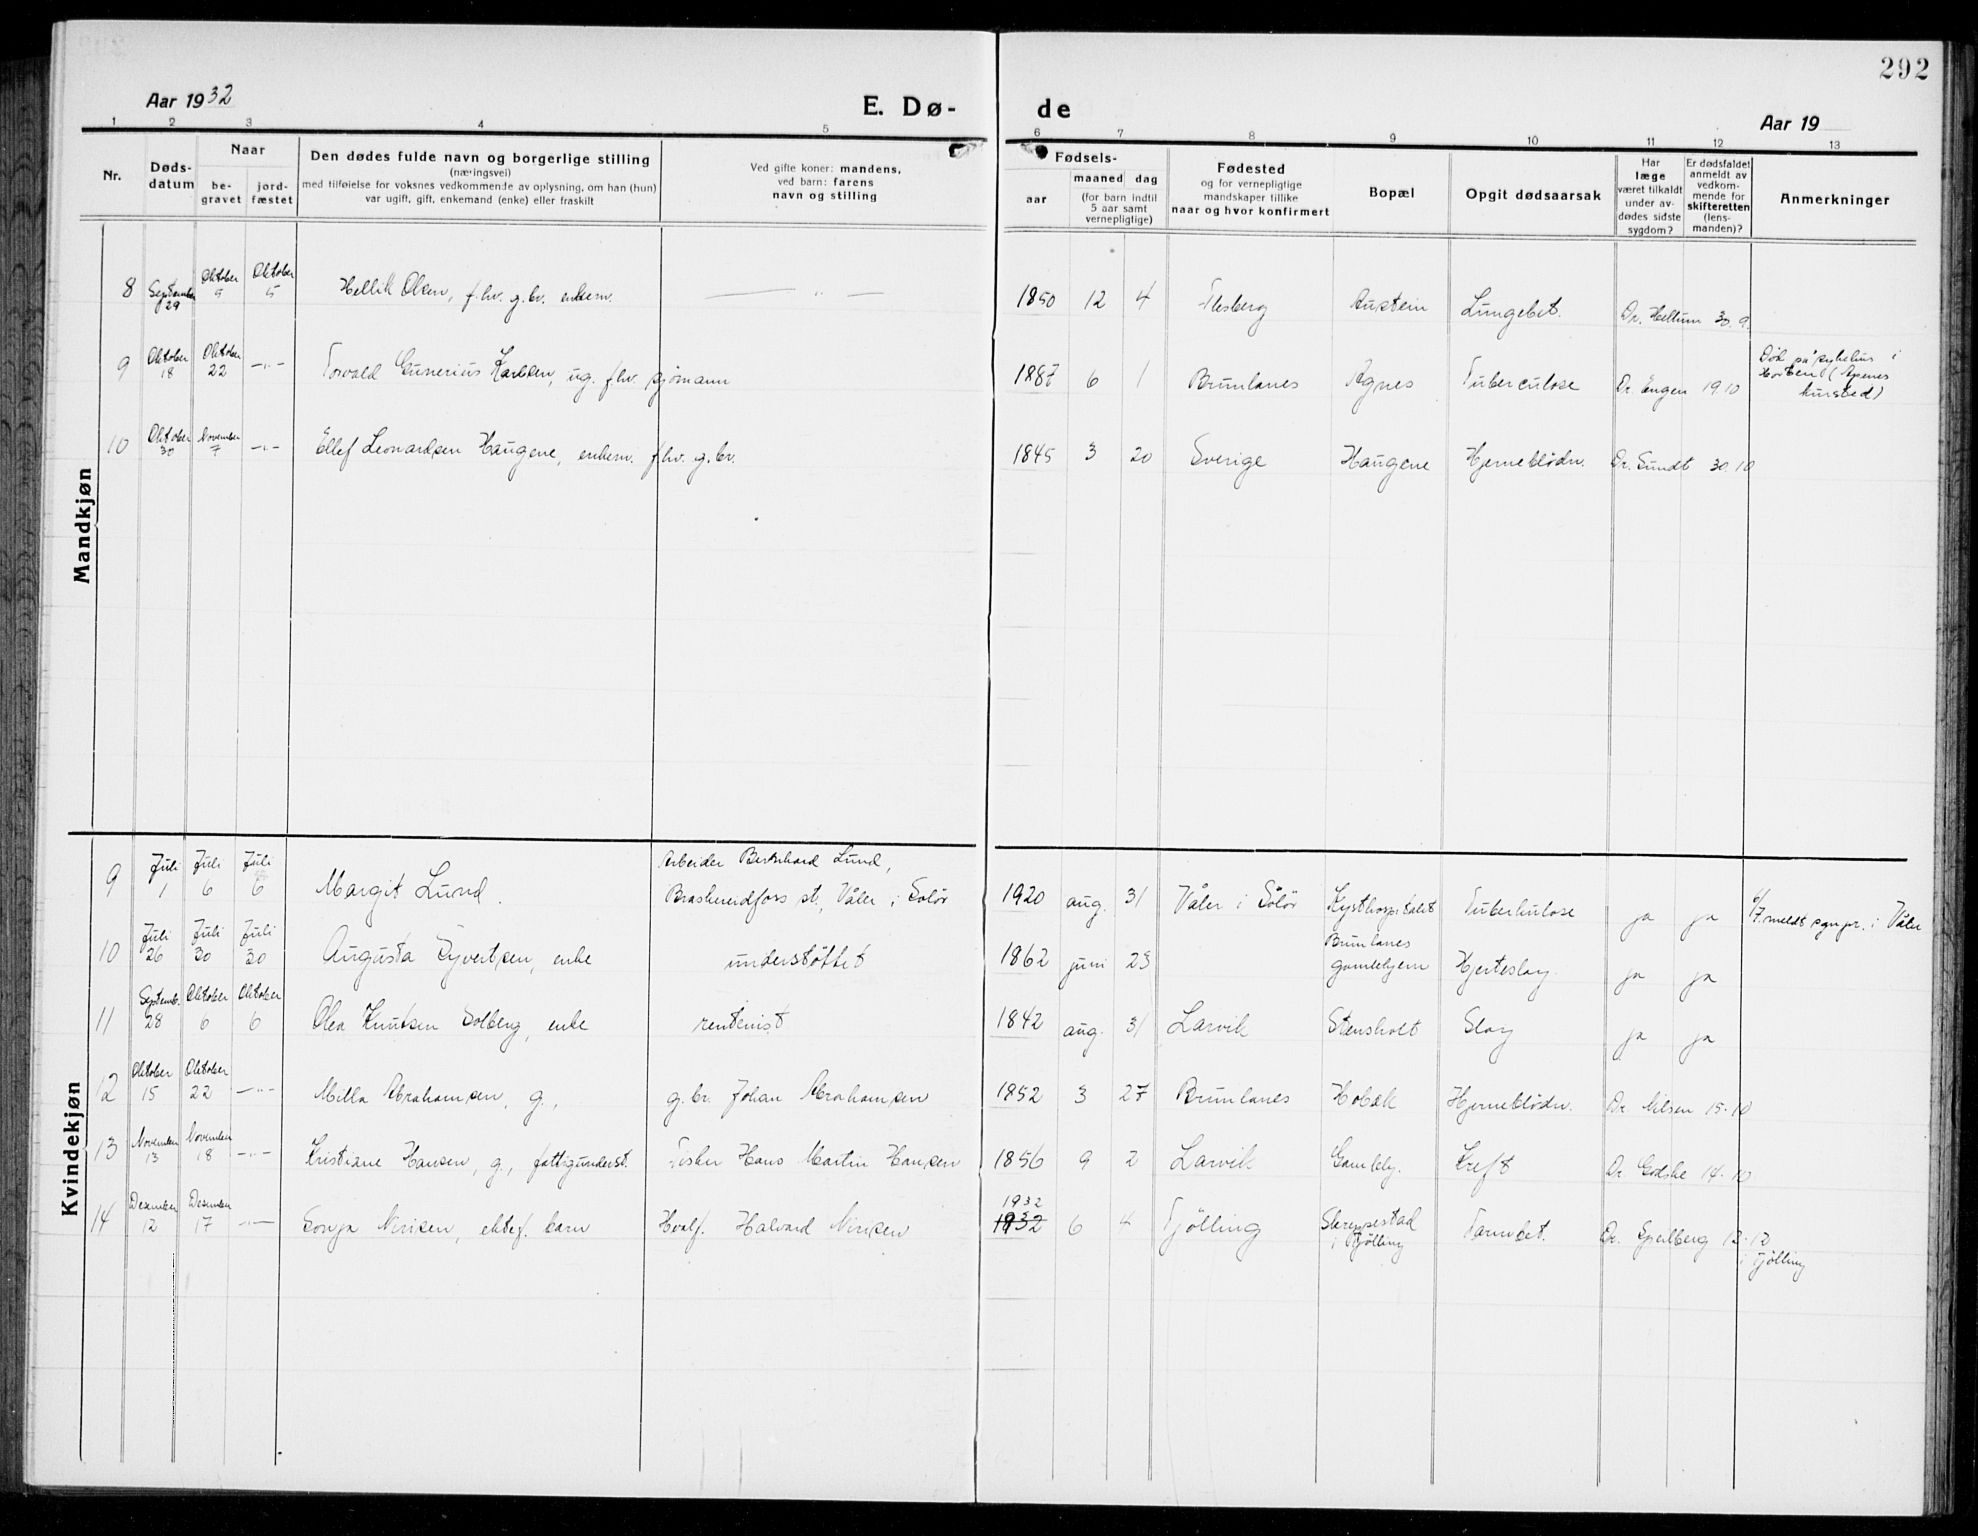 292
Aar 1932
E. Dø-
de
Aar 19
1 2 3 4 5 6 7 8 9 10 11 12 13
Nr.
Døds-
datum
Naar
be-
gravet
jord-
fæstet
Den dødes fulde navn og borgerlige stilling
(næringsvei)
med tilføielse for voksnes vedkommende av oplysning, om han (hun)
var ugift, gift, enkemand (enke) eller fraskilt
Ved gifte koner: mandens,
ved barn: farens
navn og stilling
Fødsels-
aar
maaned dag
(for barn indtil
5 aar samt
vernepligtige)
Fødested
og for vernepligtige
mandskaper tillike
naar og hvor konfirmert
Bopæl
Opgit dødsaarsak
Har
læge
været tilkaldt
under av-
dødes sidste
sygdom?
Er dødsfaldet
anmeldt av
vedkom-
mende for
skifteretten
(lens-
manden)?
Anmerkninger
Mandkjøn
8 September 29 Oktober 5 Oktober 5 Hellik Olsen, f.hv. g.br. enkem. — " — 1850 12 4 Flesberg Austein Lungebet. Dr. Hellum 30.9.
9 Oktober 18 Oktober 22 -"- Torvald Gunerius Karlsen, ug. f.hv. sjømann 1887 6 1 Brunlanes Agnes Tuberculose Dr. Engen 19.10 Død på sykehus i
Horten (Apenes
kursted)
10 Oktober 30 November 7 -"- Ellef Leonardsen Haugene, enkem. f.hv. g.br. 1845 3 20 Sverige Haugene Hjerneblødn. Dr. Sundt 30.10
Kvindekjøn
9 Juli 1 Juli 6 Juli 6 Margit Lund. Arbeider Bernhard Lund,
Braskereidfoss st., Våler i Solør 1920 aug. 31 Våler i Solør Kysthospitalet Tuberkulose ja ja meldt sgnpr. i Våler
10 Juli 26 Juli 30 Juli 30 Augusta Syvertsen, enke understøttet 1862 juni 23 Brunlanes
gamlehjem Hjerteslag. ja ja
11 Septemb. 28 Oktober 6 Oktober 6 Olea Knutsen Solberg, enke rentenist 1842 aug. 31 Larvik Stensholt Slag ja ja
12 Oktober 15 Oktober 22 -"- Milla Abrahamsen, g., g.br. Johan Abrahamsen 1852 3 27 Brunlanes Hobæk Hjerneblødn. Dr Nilsen 15.10
13 November 13 November 18 -"- Kristiane Hansen, g., fattigunderst. Fisker Hans Martin Hansen 1856 9 2 Larvik Gamlehj. Kreft Dr. Godske 14.10
14 Desember 12 Desember 17 -"- Sonja Nirisen, ektef. barn Hvalf. Halvard Nirisen 1932
1932 6 4 Tjølling Skreppestad
i Tjølling Tarmbet. Dr. Speilberg 12.12
i Tjølling